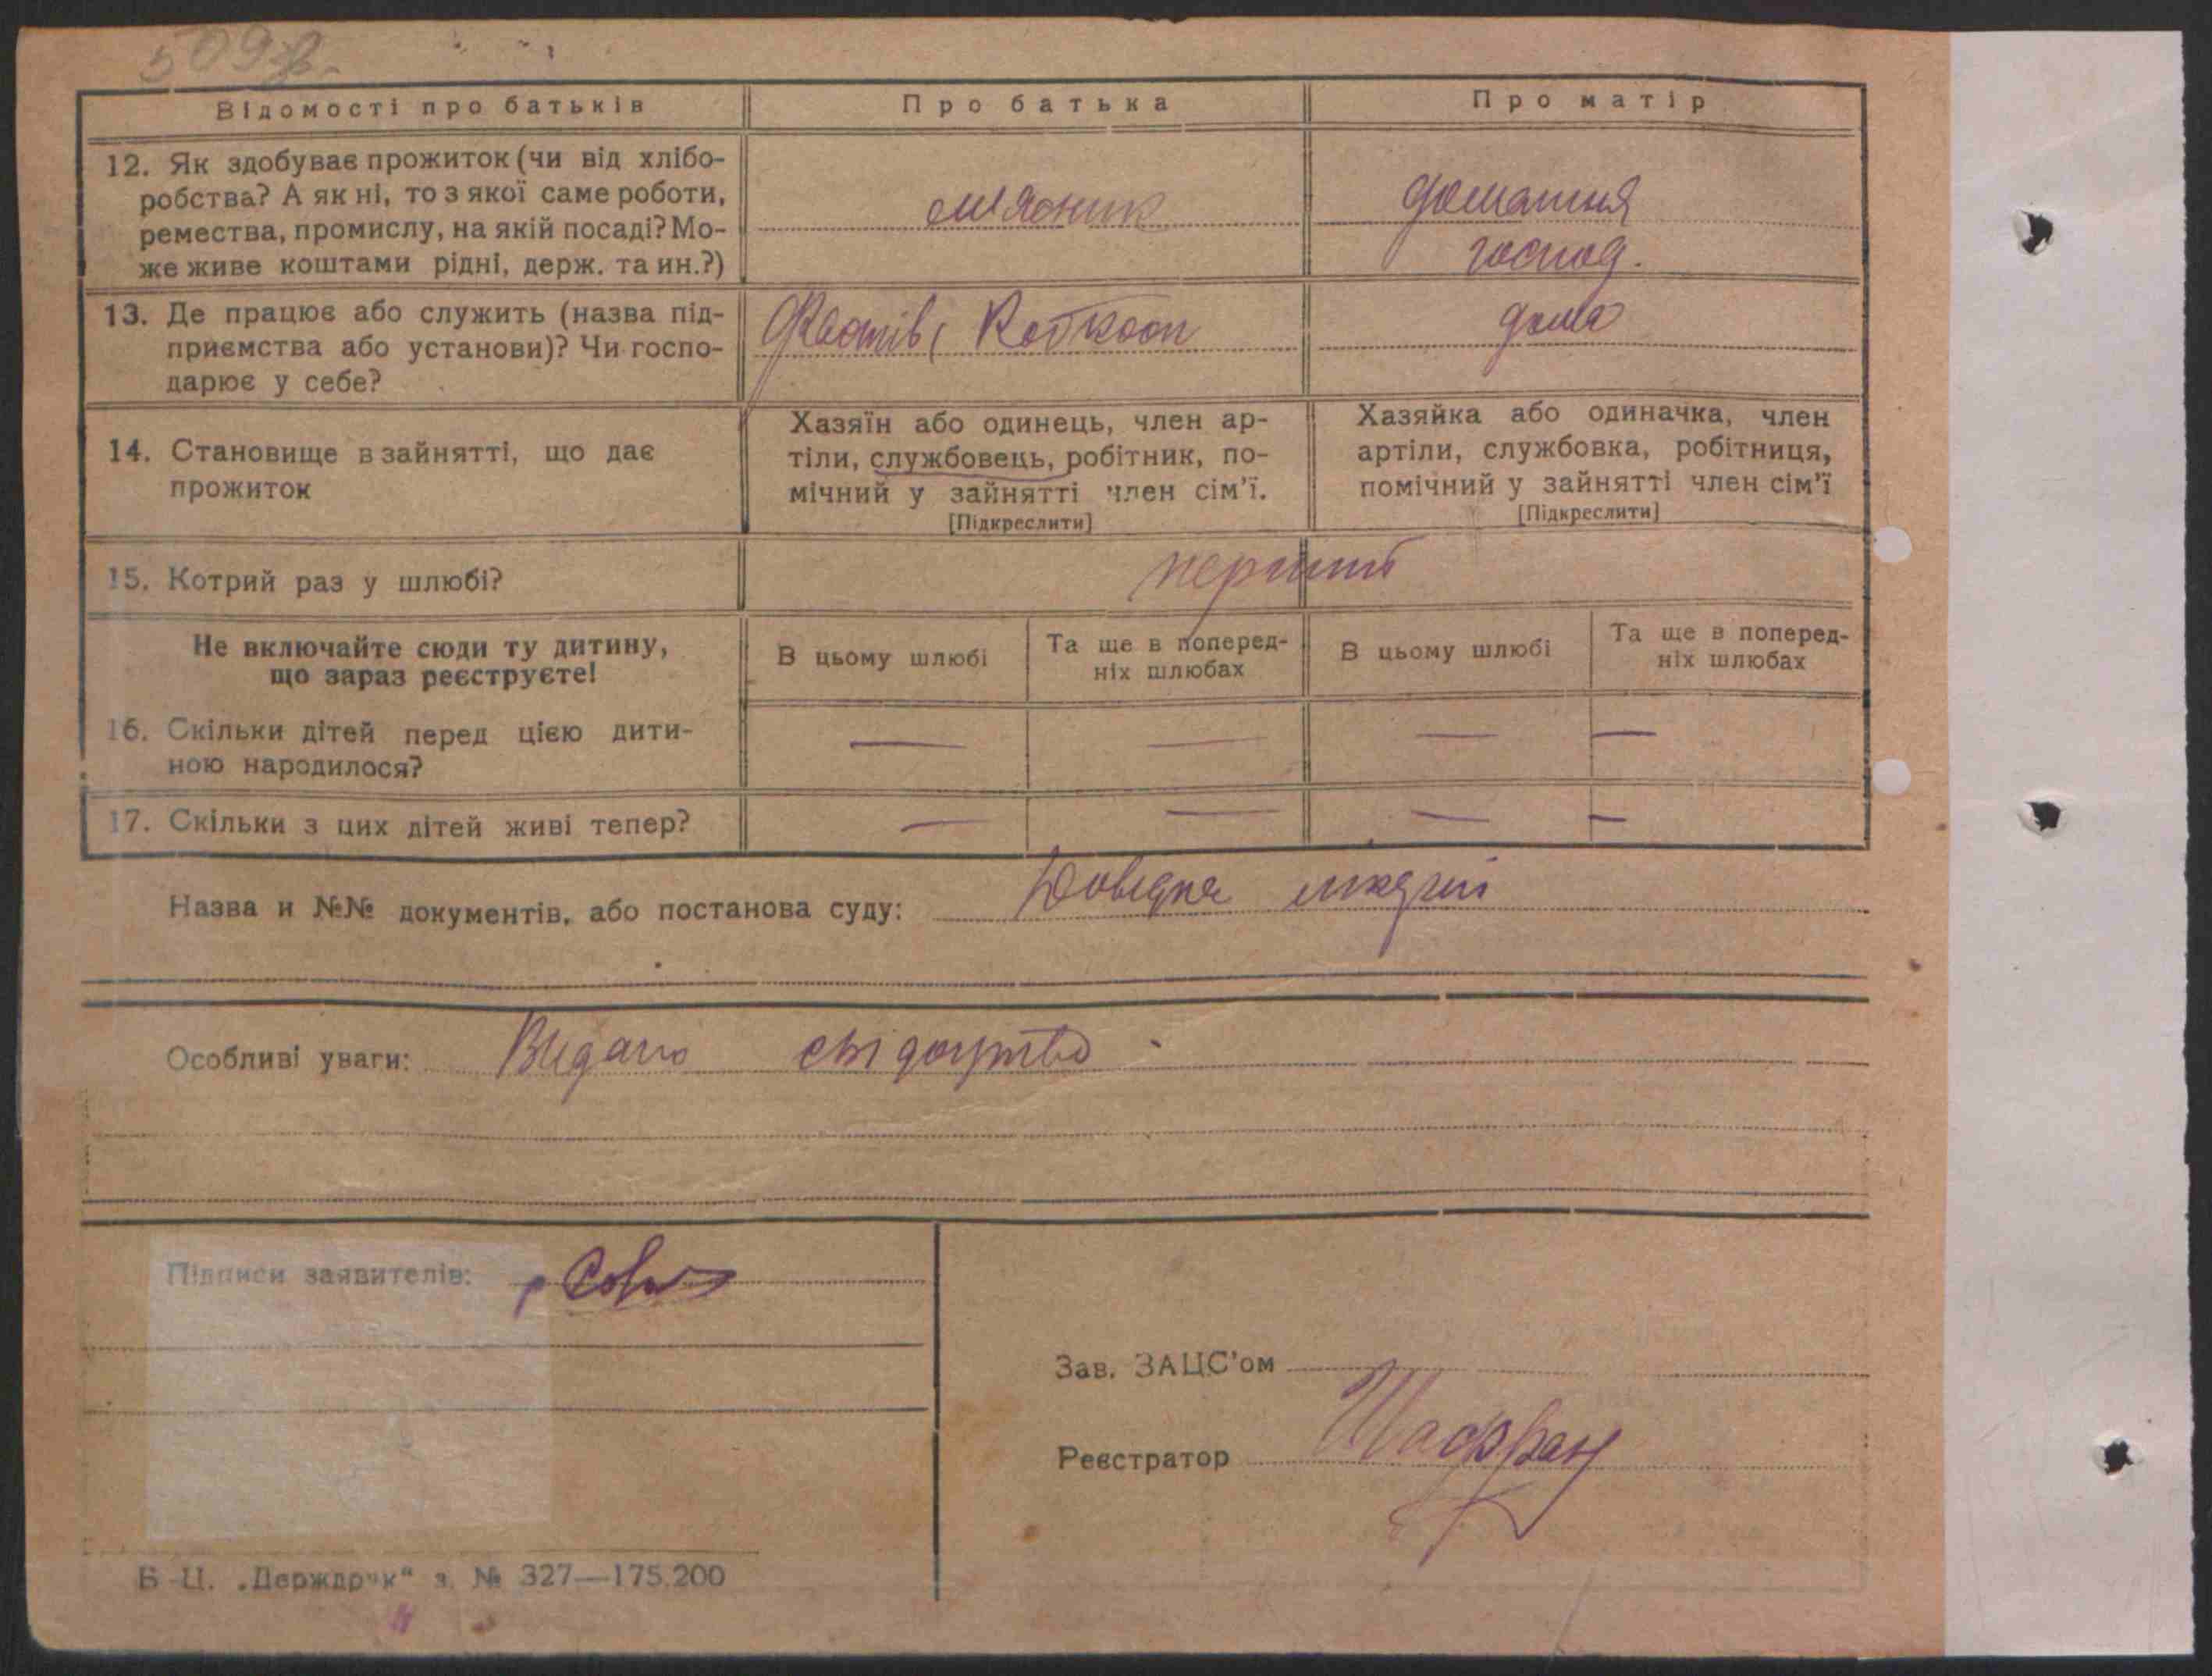 509
Відомості про батьків
Про батька
Про матір
12. Як здобуває прожиток (чи від хлібо-
робства? А як ні, то з якої саме роботи,
ремества, промислу, на якій посаді? Мо-
же живе коштами рідні, держ. та ин.?)
мʼясник
домашня
господ.
13. Де працює або служить (назва під-
приємства або установи)? Чи госпо-
дарює у себе?
Робкооп
дома
14. Становище в зайнятті, що дає
прожиток
Хазяїн або одинець, член ар-
тіли, службовець, робітник, по-
мічний у зайнятті член сім'ї.
[Підкреслити]
Хазяйка або одиначка, член
артіли, службовка, робітниця,
помічний у зайнятті член сім'ї
[Підкреслити]
15. Котрий раз у шлюбі?
перший
Не включайте сюди ту дитину,
що зараз реєструєте!
В цьому шлюбі
Та ще в поперед-
ніх шлюбах
В цьому шлюбі
Та ще в поперед-
ніх шлюбах
16. Скільки дітей перед цією дити-
ною народилося?
— — — —
17. Скільки з цих дітей живі тепер?
— — — —
Назва и №№ документів, або постанова суду: Довідка
Особливі уваги: Видано свідоцтво
Підписи заявителів:
Зав. ЗАЦС'ом
Реєстратор Шафран
Б-Ц. „Держдрук“ з. № 327—175.200